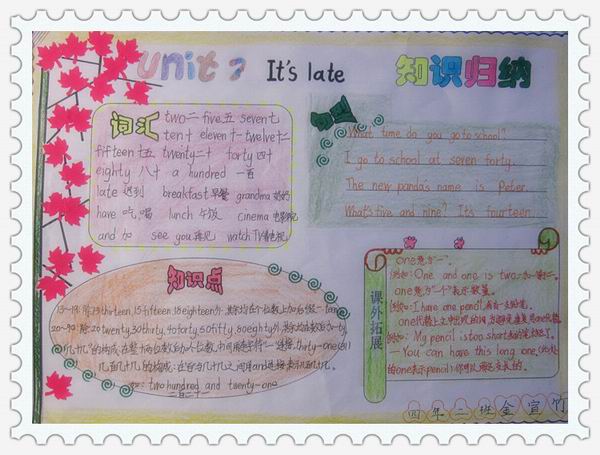 Unit 7 It's late 知识归纳
词汇 two二 five五 seven七
ten十 eleven十一 twelve十二
fifteen十五 twenty二十 forty四十
eighty 八十 a hundred 一百
late 迟到 breakfast 早餐 grandma 奶奶
have 吃,喝 lunch 午饭 cinema 电影院
and 和 see you 再见 watch TV 看电视
句型
What time do you go to school?
I go to school at seven forty.
The new panda's name is Peter.
What's five and nine? It's fourteen.
知识点
13-19: 除13thirteen, 15fifteen, 18eighteen外,
20-90: 除20twenty, 30thirty, 40forty, 50fifty, 80eighty外,
two hundred and twenty-one
二百二十一
课外拓展
one意为"一"。
例如: One and one is two.一加一等于二。
one意为"一个"表示数量。
例如: I have one pencil.我有一支铅笔。
例如: My pencil is too short.
—You can have this long one.
四年二班金宣竹